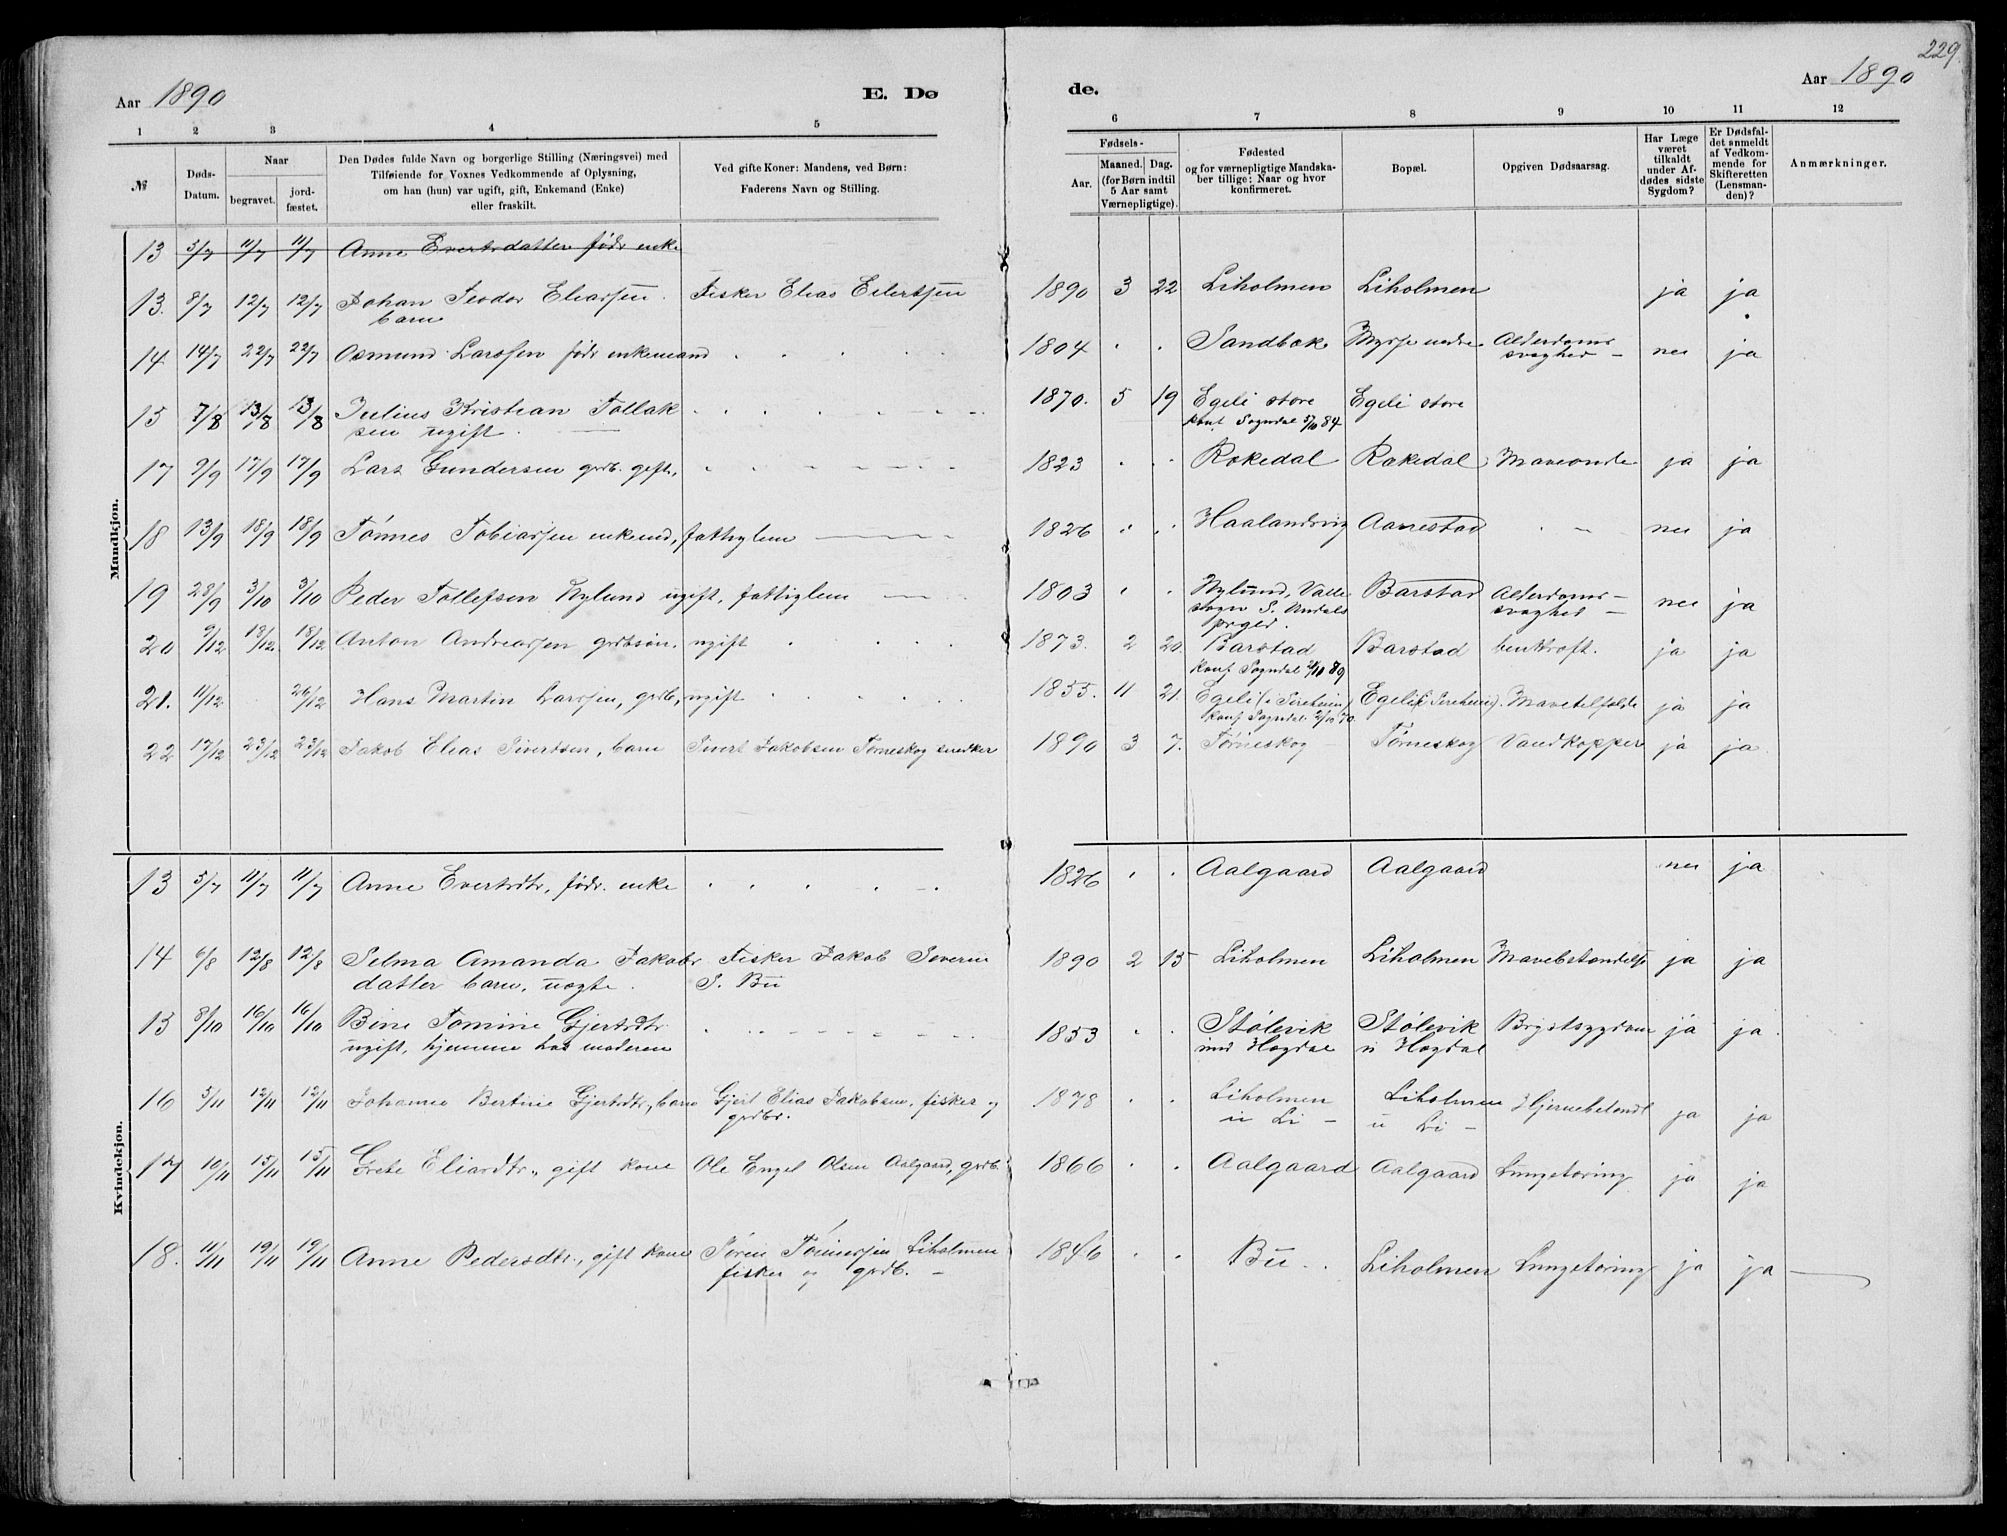 229.
Aar 1890
E. Dø
de.
Aar 1890
1 2 3 4 5 6 7 8 9 10 11 12
№
Døds-Datum.
Naar
begravet.
jord-fæstet.
Den Dødes fulde Navn og borgerlige Stilling (Næringsvei) med
Tilføiende for Voxnes Vedkommende af Oplysning,
om han (hun) var ugift, gift, Enkemand (Enke)
eller fraskilt.
Ved gifte Koner: Mandens, ved Børn:
Faderens Navn og Stilling.
Fødsels-
Aar.
Maaned. Dag.
(for Børn indtil
5 Aar samt
Værnepligtige).
Fødested
og for værnepligtige Mandska-
ber tillige: Naar og hvor
konfirmeret.
Bopæl.
Opgiven Dødsaarsag.
Har Læge
været
tilkaldt
under Af-
dødes sidste
Sygdom?
Er Dødsfal-
det anmeldt
af Vedkom-
mende for
Skifteretten
(Lensman-
den)?
Anmærkninger.
Mandkjøn.
13 5/7 11/7 11/7 Anne Evertsdatter fødr enke
13. 8/7 12/7 12/7 Johan Teodor Eliassen. Fisker Elias Eilertsen 1890 3 22 Liholmen Liholmen ja ja
barn
14 14/7 22/7 22/7 Osmund Larssen fødr enkemand 1804 Sandbæk Mysse nedre Alderdoms-
svaghed - nei ja
15 7/8 13/8 13/8 Julius Kristian Tollak 1870. 5 19 Egeli store Egeli store
sen ugift. konf Sogndal 5/10 84
17 9/9 17/9 17/9 Lars Gundersen grdb. gift, 1823 Rækedal Rækedal Maveonde ja ja
18 13/9 18/9 18/9 Tønnes Tobiassen enkemd, fattiglem 1826 Haalandsvig Aarrestad nei ja
19 28/9 3/10 3/10 Peder Tollefsen Nylund ugift, fattiglem 1803 Nylund, Valle Barstad Alderdoms-
sogn S. Undals svaghed - nei ja
prgjd.
20 9/12 18/12 18/12 Anton Andreassen grdbsøn. ugift 1873. 2 20. Barstad Barstad benkræft. ja ja
konf Sogndal 89
21. 11/12 26/12 Hans Martin Larssen, grdb, ugift 1855. 11 21. Egeli (i Sireheien) Egeli (i Sireheien). Mavetilfælde ja ja
konf Sogndal 2/10 70.
22 17/12 23/12 23/12 Jakob Elias Sivertsen, barn Sivert Jakobsen Tørneskog snedker 1890 3 7. Tørneskog Tørneskog Vandkopper ja ja
Kvindekjøn.
13 5/7 11/7 11/7 Anne Evertsdtr, fødr. enke 1826 Aalgaard Aalgaard nei ja
14 6/8 12/8 12/8 Selma Amanda Jakobs Fisker Jakob Severin 1890 2 15 Liholmen Liholmen ja ja
datter barn, uægte. S. Bu
13 8/10 16/10 16/10 Bine Tomine Gjertsdtr 1853 Stølevik Stølevik Brystsygdom ja ja
ugift, hjemme hos moderen und Hogdal u Hogdal
16 5/11 12/11 12/11 Johanne Bertine Gjertsdtr, barn Gjert Elias Jakobsen, fisker og 1878 Liholmen Liholmen ja ja
grdbr. u Li - u Li -
17 10/11 15/11 15/11 Grete Eliasdtr., gift kone Ole Engel Olsen Aalgaard, grdb. 1866 Aalgaard Aalgaard Lungetæring ja ja
18. 11/11 19/11 19/11 Anne Pedersdtr., gift kone Søren Tønnessen Liholmen 1846 Bu Liholmen Lungetæring ja ja
fisker og grdb. -